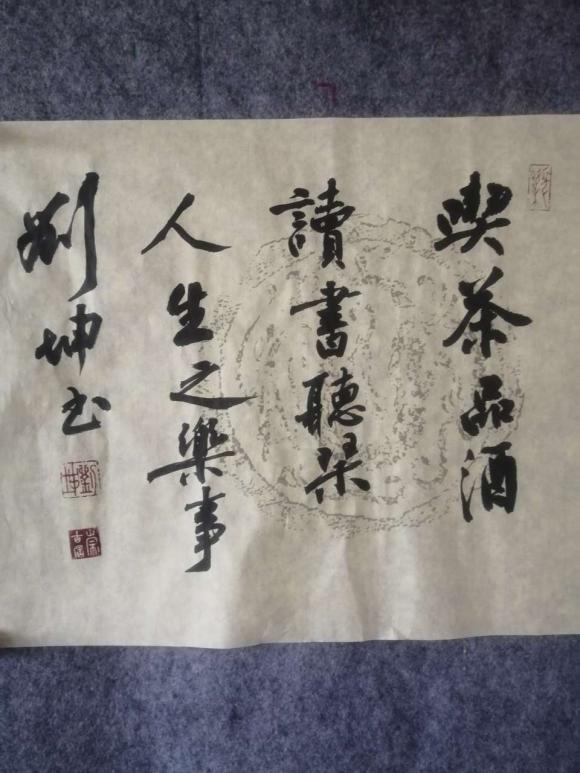 喫茶品酒
讀書聽
人生之樂事
劉坤书
劉坤